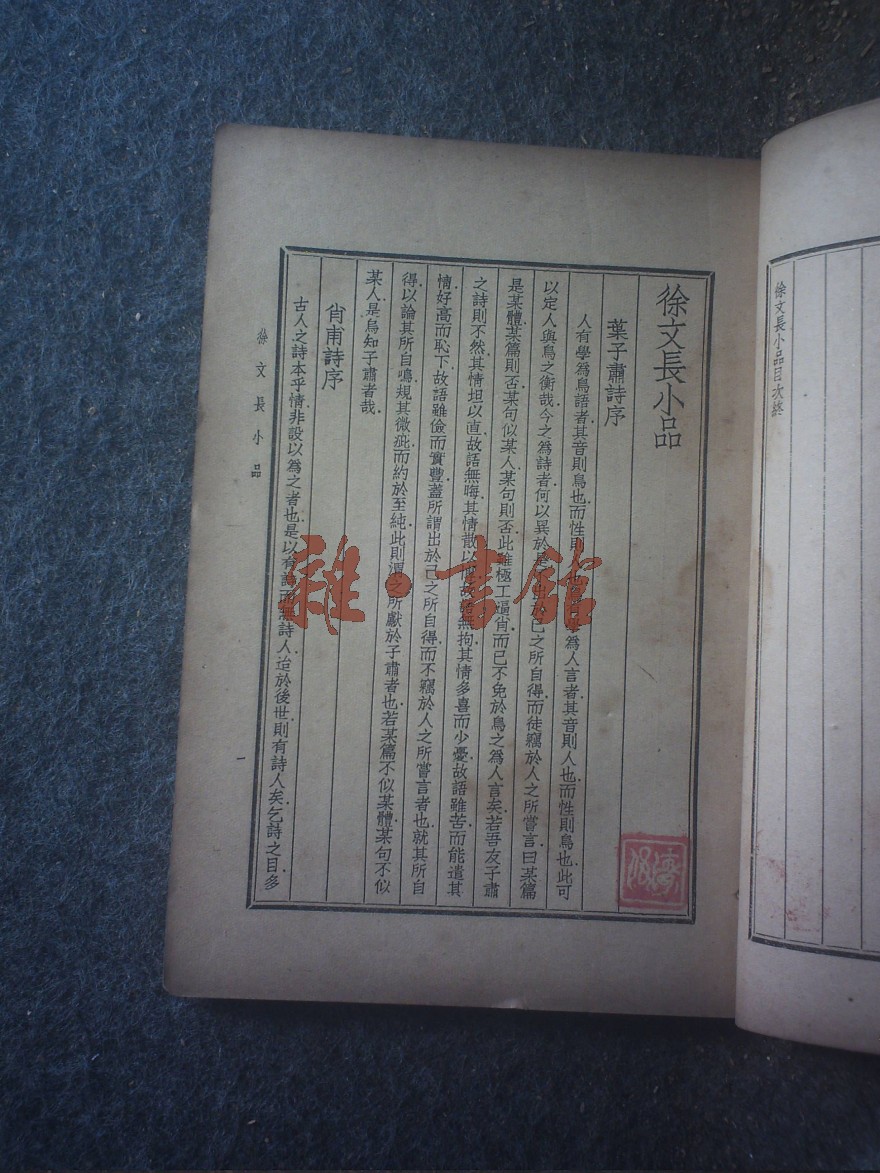 徐文長小品目次終
徐文長小品
葉子肅詩序
人有學爲鳥語者.其音則鳥也.而性則也.學爲人言者.其音則人也.而性則鳥也.此可
以定人與鳥之衡哉.今之爲詩者.何以異於出於己之所自得.而徒竊於人之所嘗言.曰某篇
是某體.某篇則否.某句似某人.某句則否.此雖極工逼肖.而已不免於鳥之爲人言矣.若吾友子肅
之詩則不然.其情坦以直.故語無晦.其情散以故語無拘.其情多喜而少憂.故語雖苦而能遣.其
情好高而恥下.故語雖儉而實豐.蓋所謂出於己之所自得.而不竊於人之所嘗言者也.就其所自
得.以論其所自鳴.規其微疵.而約於至純.此則渭之所獻於子肅者也.若某篇不似某體.某句不似
某人.是烏知子肅者哉.
肖甫詩序
古人之詩本乎情.非設以爲之者也.是以有詩而無詩人.迨於後世.則有詩人矣.乞詩之目.多
徐文長小品
一
雜·書館